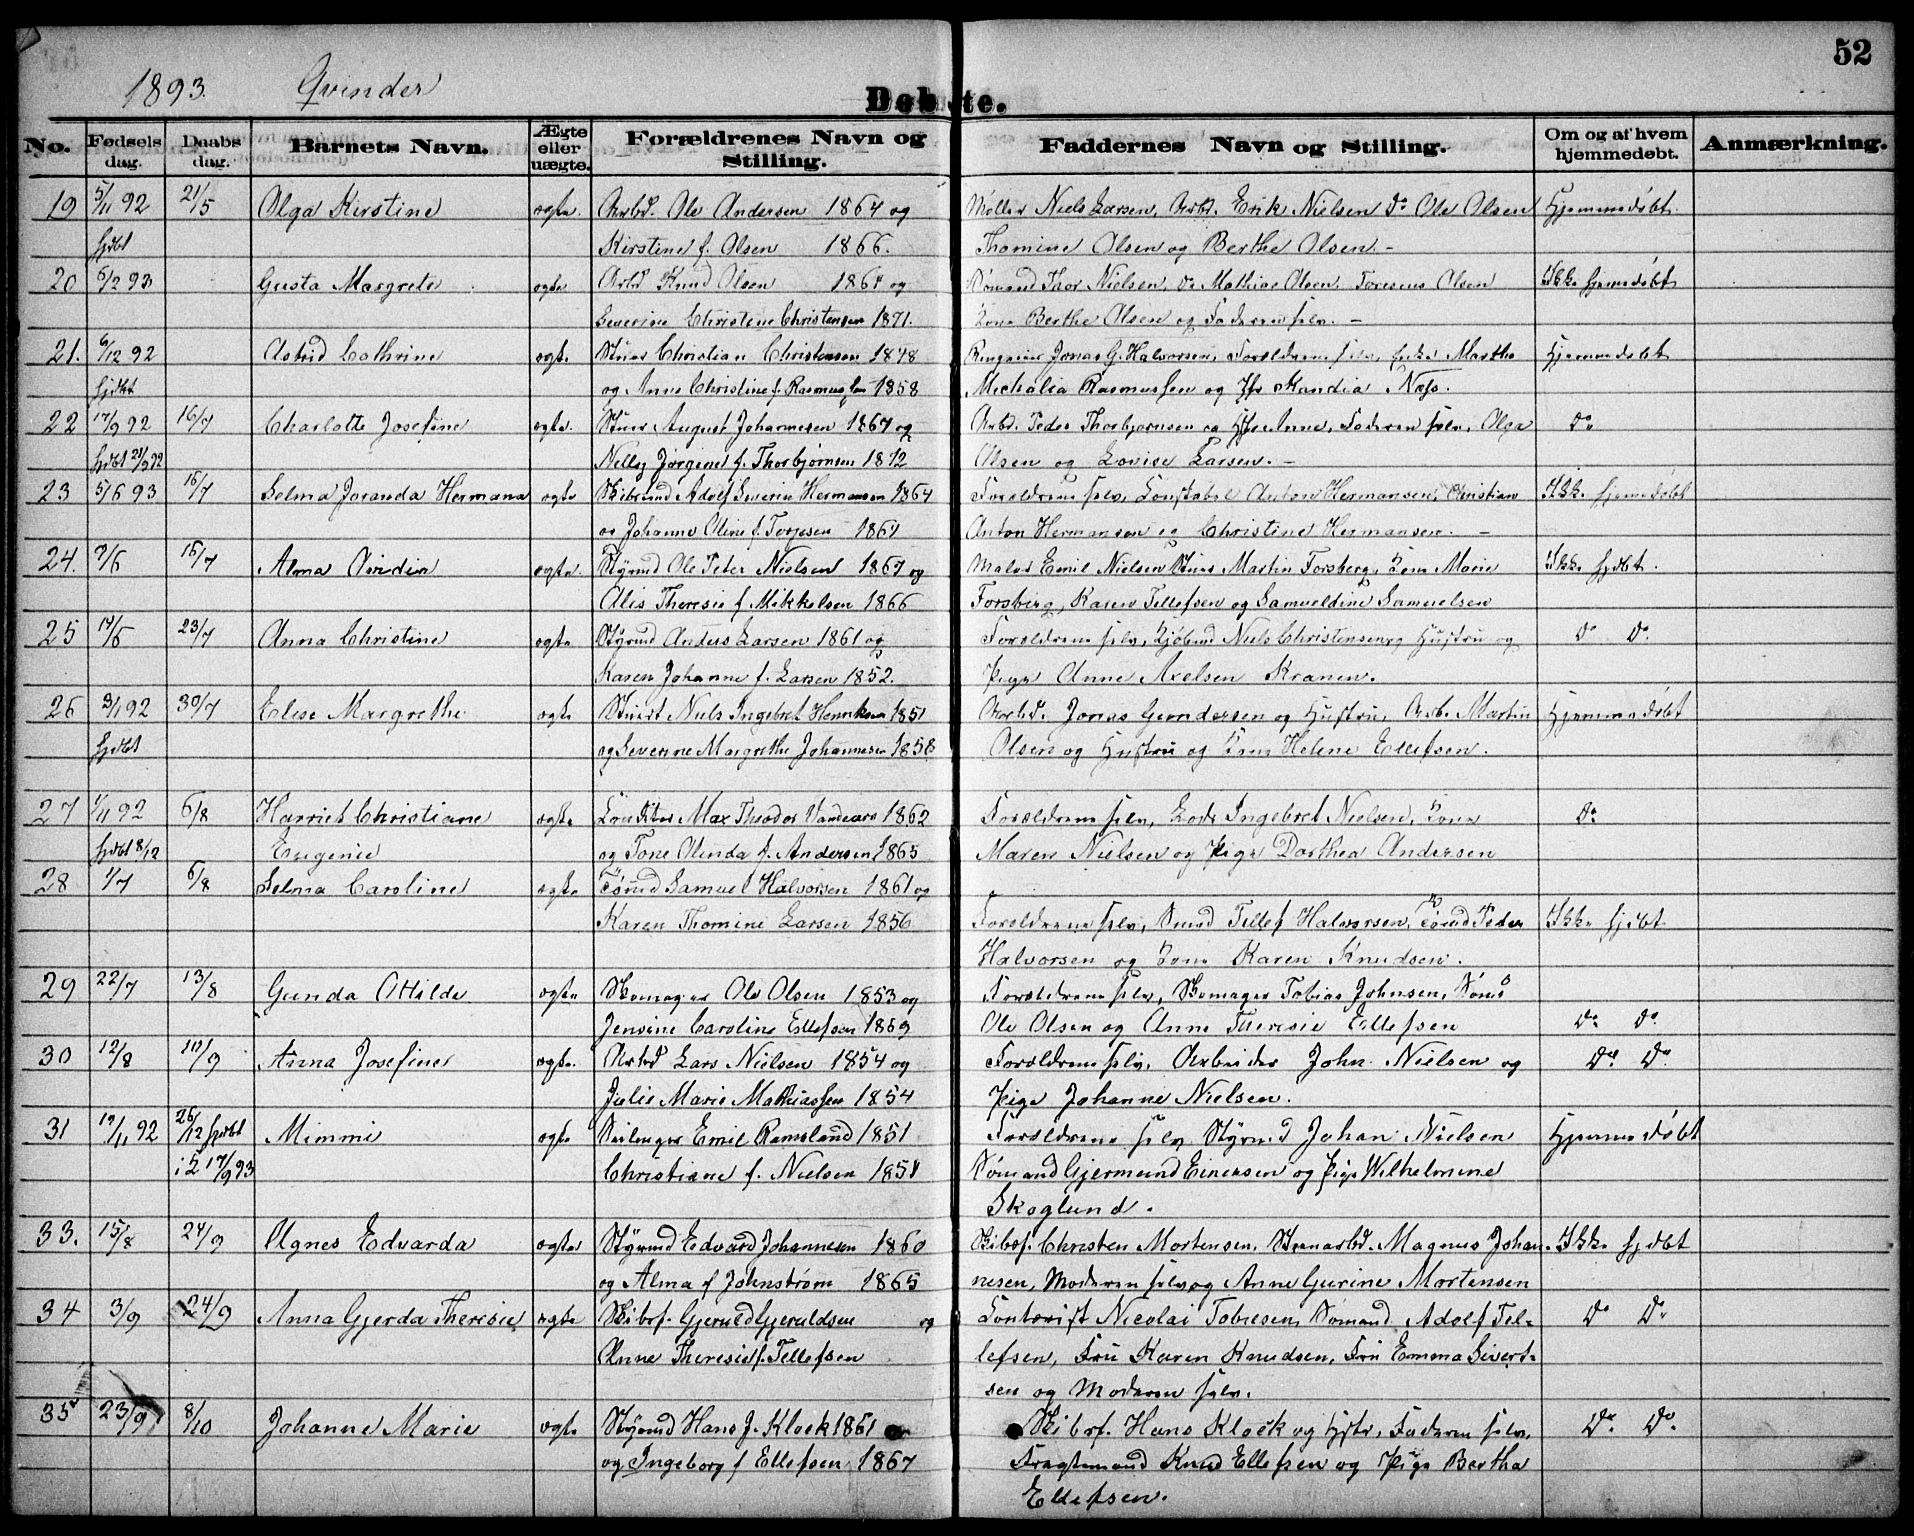 52
1893. Qvinder
Døbte.
No. Fødsels dag. Daabs dag. Barnets Navn. Ægte eller uægte. Forældrenes Navn og Stilling. Faddernes Navn og Stilling. Om og af hvem hjemmedøbt. Anmærkning.
19 5/11 92 21/5 Olga Kirstine ægte. Arbd. Ole Andersen 1864 og Møller Niels Larsen, Arbd. Erik Nielsen Do Ole Olsen Hjemmedøbt.
hjdbt Kirstine f. Olsen 1866. Thomine Olsen og Berthe Olsen. -
20 6/2 93 Gusta Margrete ægte Arbd Knud Olsen 1864 og Sømand Thor Nielsen, Do Mathias Olsen, Olsen Ikke hjemmedøbt
Severine Christine Christensen 1871. Kone Berthe Olsen og Faderen selv. -
21. 6/12 92 Astrid Cathrine ægte Christian Christensen 1848 Jonas G. Halvorsen, Forældrene selv, Enke Marthe Hjemmedøbt
hjdbt og Anne Christine f. Rasmussen 1858 Michalia Rasmussen og Skandia Næs.
22 17/9 92 16/7 Charlotte Josefine ægte. August Johannesen 1867 og Arbd. Peder Thorbjørnsen og Anne, Faderen selv, Olga Do
hjdbt 21/9 92 Nelly Jørgine f. Thorbjørnsen 1872 Olsen og Lovise Larsen. -
23 5/6 93 16/7 Selma Joranda Hermana ægte Adolf Severin Hermansen 1864 Forældrene selv, Konstabel Anton Hermansen, Christian Ikke hjemmedøbt
og Johanne Oline f. Terjesen 1861 Anton Hermansen og Christine Hermansen. -
24. 7/6 16/7 Alma ægte. Styrmd Ole Peter Nielsen 1867 og Maler Emil Nielsen Martin Forsberg, Kone Marie Ikke hjdbt.
Alis Theresie f. Mikkelsen 1866 Forsberg, Karen Tellefsen og Samueldine Samuelsen
25 17/6 23/7 Anna Christine ægte. Styrmd Anders Larsen 1861 og Forældrene selv, Kjøbmd Niels Christensen, Hustru og Do Do.
Karen Johanne f. Larsen 1852. Pige Anne Axelsen Kranen.
26 3/1 92 30/7 Elise Margrethe ægte Niels Ingebret Henriksen 1851 Arbd. Jonas Gundersen og Hustru, Arb. Martin Hjemmedøbt
hjdbt og Severine Margrethe Johannesen 1858 Olsen og Hustru og Kone Helene Ellefsen.
27 1/11 92 6/8 Harriet Christiane ægte Max Theodor 1862 Forældrene selv, Lods Ingebret Nielsen, Kone Do
hjdbt 8/12 Eugenie og Tone Olinda f. Andersen 1865 Maren Nielsen og Pige Dorthea Andersen
28 1/7 6/8 Selma Caroline ægte Tømd Samuel Halvorsen 1861 og
Karen Thomine Larsen 1856 Forældrene selv, Tellef Halvorsen, Tømd Peder Ikke hjdbt
Halvorsen og Kone Karen Knudsen.
29 22/7 13/8 Gunda Otilde ægte Skomager Ole Olsen 1853 og Forældrene selv, Skomager Tobias Johnsen, Sømd
Jensine Caroline Ellefsen 1869 Ole Olsen og Anne Theresie Ellefsen Do Do
30 12/8 10/9 Anna Josefine ægte. Arbd Lars Nielsen 1854 og Forældrene selv, Arbeider John Nielsen og Do Do.
Julie Marie Mathiassen 1854 Pige Johanne Nielsen.
31 19/11 92 26/12 hjdbt Mimmi ægte Emil Ramsland 1851 Forældrene selv, Styrmd Johan Nielsen Hjemmedøbt
i 17/9 93 Christiane f. Nielsen 1851 Sømand Gjermund Einersen og Pige Wilhelmine
Skoglund.
33. 15/8 24/9 Agnes Edvarda ægte Styrmd Edvard Johannesen 1860 Skibsf. Christen Mortensen, Magnus Johan- Ikke hjdbt
og Alma f Johnstrøm 1865 nesen, Moderen selv og Anne Gurine Mortensen
34 3/9 24/9 Anna Gjerda Theresie ægte Skibsf. Gjeruld Gjeruldsen og Kontorist Nicolai Tobiesen, Sømand Adolf Tel- Do Do
Anne Theresie f. Tellefsen lefsen, Fru Karen Knudsen, Fru Emma Sivert-
sen og Moderen selv.
35 23/9 8/10 Johanne Marie ægte Styrmd Hans J. Klock 1861 Skibsf. Hans Klock og Hstr, Faderen selv, Do Do.
og Ingeborg f Ellefsen 1867 Fragtemand Knud Ellefsen og Pige Bertha
Ellefsen.